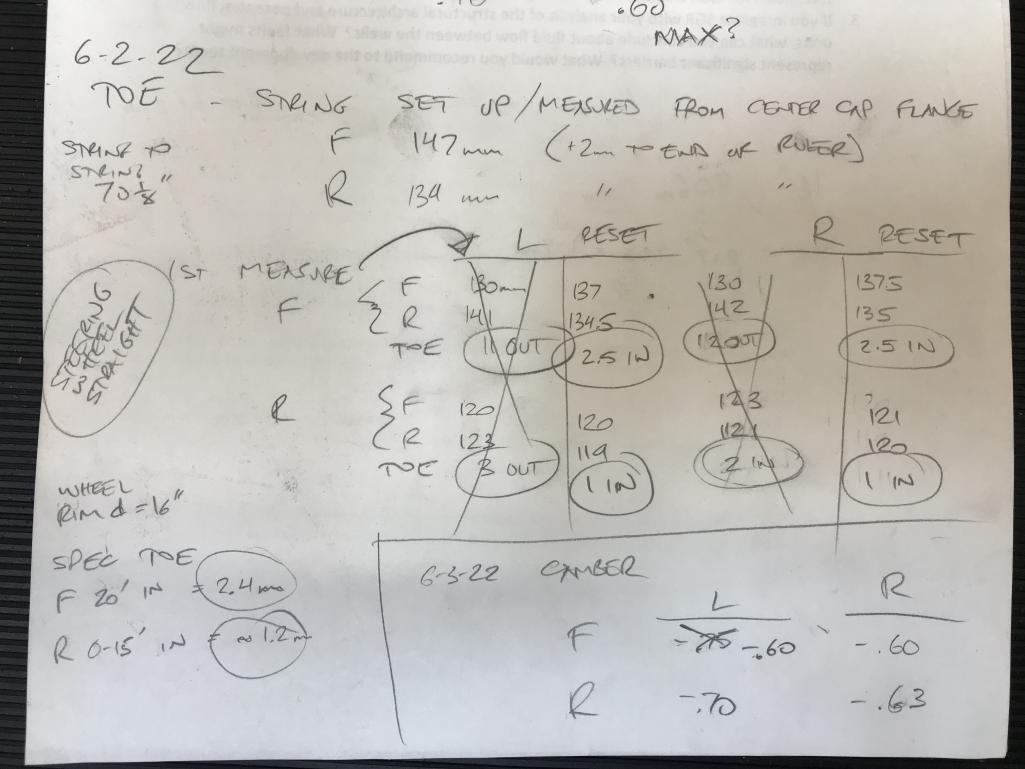 .60
MAX?
6-2-22
TOE - STRING SET UP/MEASURED FROM CENTER CAP FLANGE
STRING TO STRING 70 1/8"
F 147mm (+2mm TO END OF RULER)
R 134 mm " "
L RESET R RESET
1ST MEASURE
STEERING WHEEL STRAIGHT
F { F 130mm 137 130 137.5
R 141 134.5 142 135
TOE 11 OUT 2.5 IN 12 OUT 2.5 IN
R { F 120 120 123 121
R 123 119 121 120
TOE 3 OUT 1 IN 2 IN 1 IN
WHEEL
RIM d = 16"
SPEC TOE
F 20' IN = 2.4mm
R 0-15' IN = ∞ 1.2m
6-3-22 CAMBER
L R
F -.60 -.60
R -.70 -.63